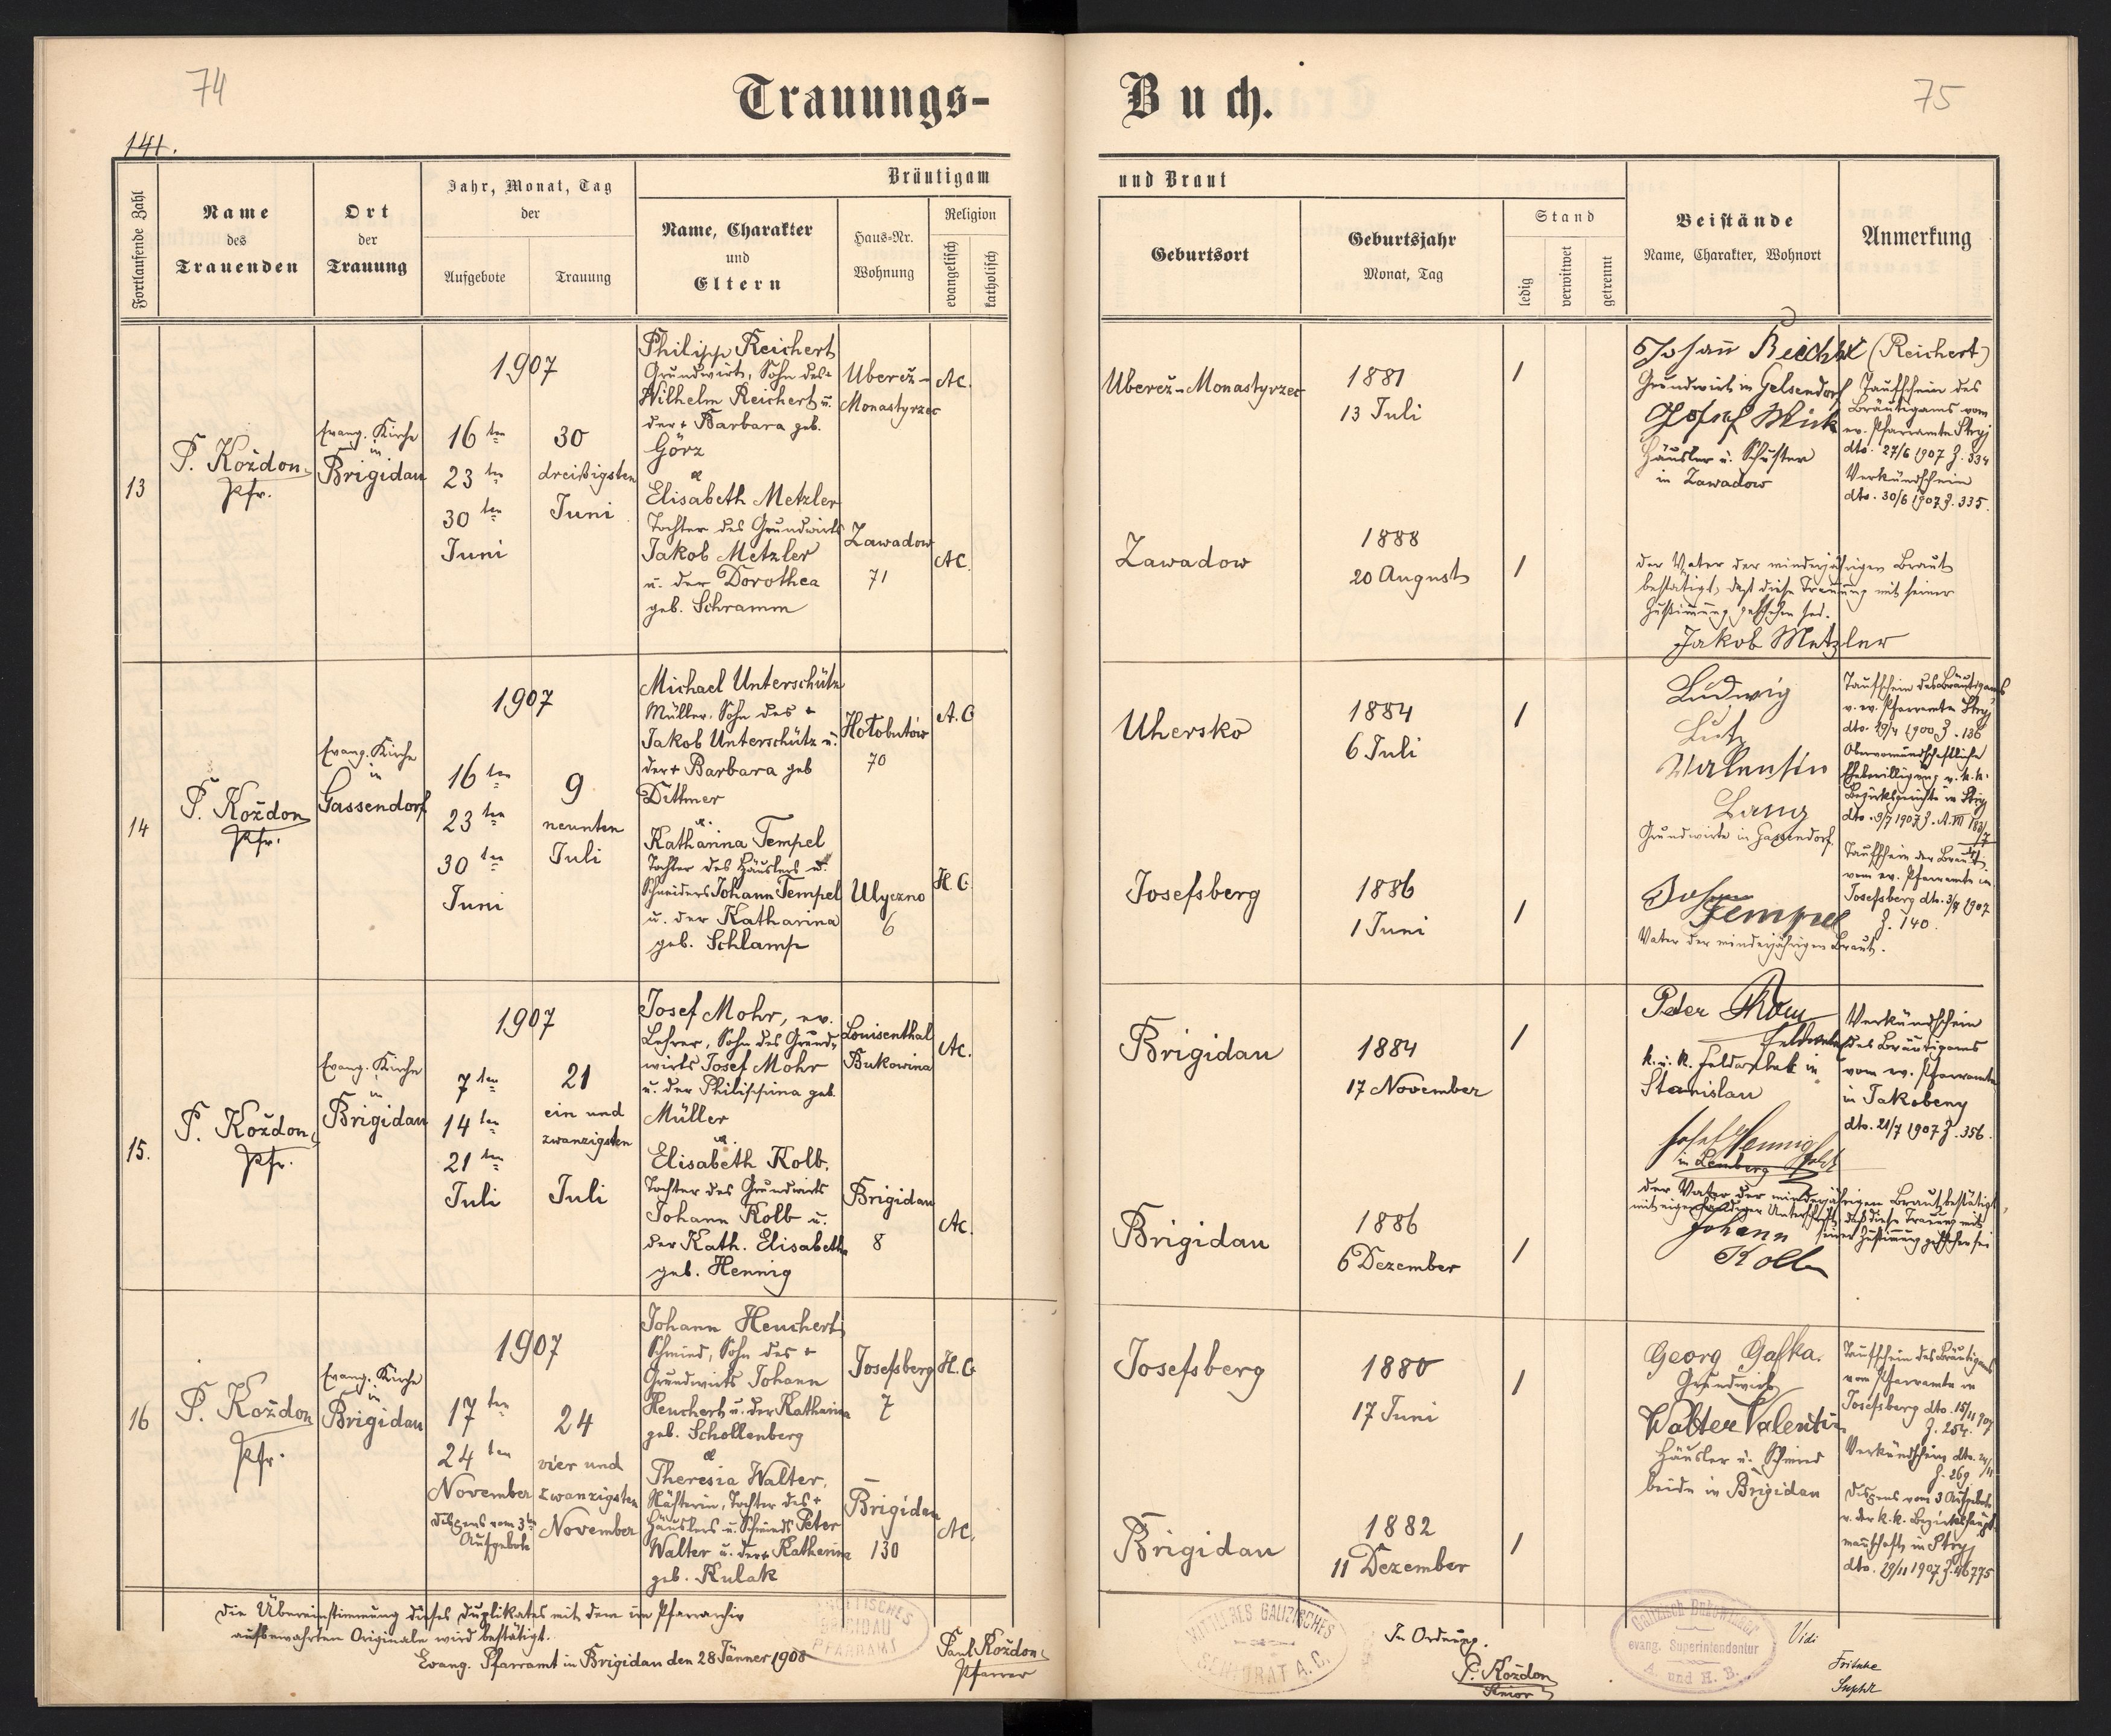 74
Trauungs-
Buch.
75
141.
Fortlaufende Zahl
Name
des
Trauenden
Ort
der
Trauung
Jahr, Monat, Tag
der
Aufgebote
Trauung
Bräutigam
Name, Charakter
und
Eltern
Haus-Nr.
Wohnung
Religion
evangelisch
katholisch
und Braut
Geburtsort
Geburtsjahr
Monat, Tag
Stand
ledig
verwitwet
getrennt
Beistände
Name, Charakter, Wohnort
Anmerkung
13
P. Kożdon
Pfr.
Evang. Kirche
in
Brigidau
1907
16ten
23ten
30ten
Juni
30
dreißigsten
Juni
Philipp Reichert
Grundwirt, Sohn des
Wilhelm Reichert u.
der + Barbara geb.
Görz
&
Elisabeth Metzler
Tochter des Grundwirts
Jakob Metzler
u. der Dorothea
geb. Schramm
Uberež-
Monastyrzec
Zawadow
71
AC.
AC.
Uberež-Monastyrzec
Zawadow
1881
13 Juli
1888
20 August
/
/
Johann Reichert (Reichert)
Grundwirt in Gelsendorf
Josef Mück
Häusler u. Schuster
in Zawadow
Taufschein des
Bräutigams vom
ev. Pfarramte Stryj
dto. 27/6 1907 Z. 334
Verkündschein
dto. 30/6 1907 Z. 335.
der Vater der minderjährigen Braut
bestätigt, daß diese Trauung mit seiner
Zustimmung geschehen sei.
Jakob Metzler
14
P. Kożdon
Pfr.
Evang. Kirche
in
Gassendorf
1907
16ten
23ten
30ten
Juni
9
neunten
Juli
Michael Unterschütz
Müller, Sohn des +
Jakob Unterschütz u.
der + Barbara geb
Dittmer
&
Katharina Tempel
Tochter des Häuslers u.
Schneiders Johann Tempel
u. der Katharina
geb. Schlamp
Hołobutów
70
Ulyczno
6
A.C
H.C
Uhersko
Josefsberg
1884
6 Juli
1886
1 Juni
/
/
Ludwig
Lutz
Valentin
Lang
Grundwirte in Gassendorf.
Johann
Tempel
Vater der minderjährigen Braut.
Taufschein des Bräutigams
v. ev. Pfarramte Stryj
dto. 29/4 1900 Z. 136
Obervormundschaftliche
Ehebewilligung v. k.k.
Bezirksgerichte in Stryj
Taufschein der Braut
vom ev. Pfarramte in
Josefsberg dto. 3/7 1907
Z. 140.
15.
P. Kożdon
Pfr.
Evang. Kirche
in
Brigidau
1907
7ten
14ten
21ten
Juli
21
ein und
zwanzigsten
Juli
Josef Mohr, ev.
Lehrer, Sohn des Grund-
wirts Josef Mohr
u. der Philippina geb.
Müller
&
Elisabeth Kolb,
Tochter des Grundwirts
Johann Kolb u.
der Kath. Elisabeth
geb. Hennig
Louisenthal
Bukowina
Brigidau
8
AC.
AC.
Brigidau
Brigidau
1884
17 November
1886
6 Dezember
/
/
Peter
k. u. k. in
Stanislau
Josef Hennig
in Lemberg
Verkündschein
des Bräutigams
vom ev. Pfarramte
in Jakobeny
dto. 21/7 1907 Z. 356.
der Vater der minderjährigen Braut bestätigt,
mit eigenhändiger Unterschrift, daß diese Trauung mit
seiner Zustimmung geschehen sei
Johann
Kolb
16
P. Kożdon
Pfr.
Evang. Kirche
in
Brigidau
1907
17ten
24ten
November
Dispens vom 3ten
Aufgebote
24
vier und
zwanzigsten
November
Johann Heuchert
Schmied, Sohn des +
Grundwirts Johann
Heuchert u. der Katharina
geb. Schollenberg
&
Theresia Walter,
Nähterin, Tochter des +
Häuslers u. Schmieds Peter
Walter u. der + Katherina
geb. Kulak
Josefsberg
7
Brigidau
130
H.C
AC.
Josefsberg
Brigidau
1880
17 Juni
1882
11 Dezember
/
/
Georg Galka.
Grundwirt
Walter Valentin
Häusler u. Schmied
beide in Brigidau
Taufschein des Bräutigams
vom Pfarramte in
Josefsberg dto. 15/11 907
Z. 254.
Verkündschein dto. 24/11
Z. 269
Dispens vom 3 Aufgebote
v. der k.k. Bezirkshaupt-
mannschaft in Stryj
dto. 29/11 1907 Z. 46775
Die Übereinstimmung dieses Duplikates mit dem im Pfarrarchiv
aufbewahrten Originale wird bestätigt.
Evang. Pfarramt in Brigidau den 28 Jänner 1908
BRIGIDAU
PFARRAMT
Paul Kożdon
Pfarrer
MITTLERES GALIZISCHES
SENIORAT A. C.
In Ordnung.
P. Kożdon
Senior
Galizisch Bukowinaer
evang. Superintendentur
A. und H. B.
Vidi
Fritsche
Supdt